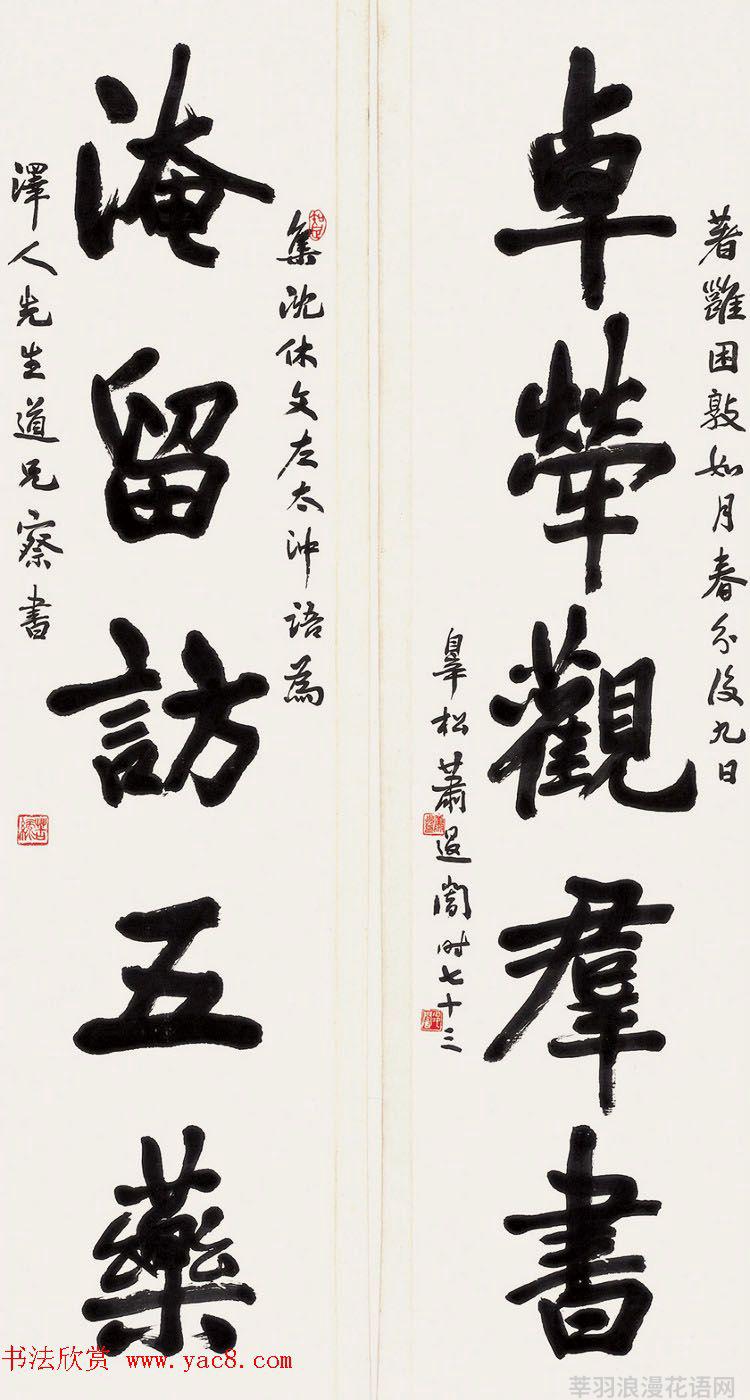 著雝困敦如月春分後九日
卓犖觀羣書
皋松蕭退闇时七十三
集沈休文左太沖語為
淹留訪五藥
澤人先生道兄察書
书法欣赏 www.yac8.com
莘羽浪漫花语网